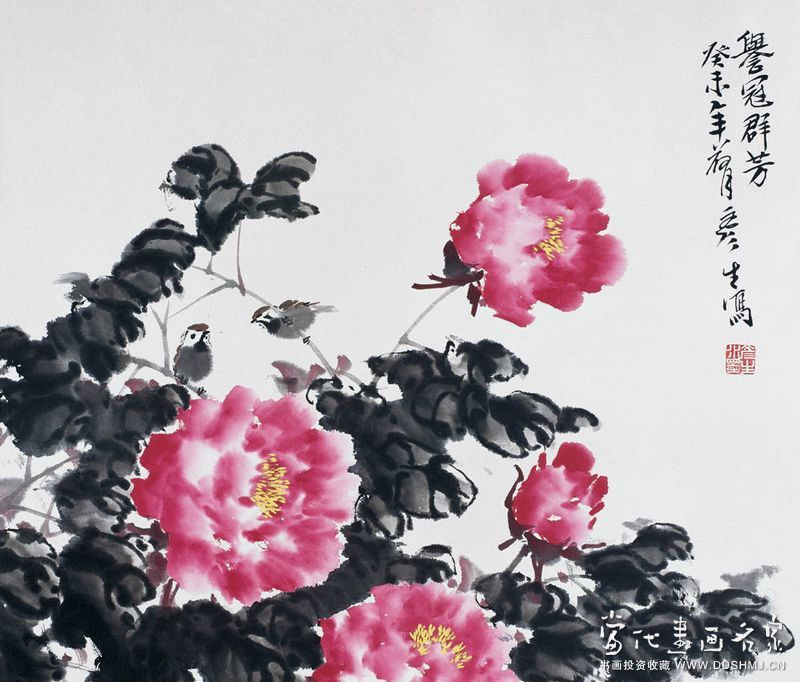 譽冠群芳
癸未年荷月
生寫
當代書画名家
书画投资收藏 WWW.DDSHMJ.CN